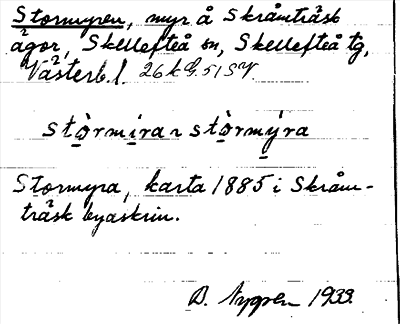 Stormyren, myr å Skråmträsk
ägor, Skellefteå sn, Skellefteå tg,
Västerb. l. 26k G. 515V.
stòrmíra ~ stòrmýra
Stormyra, karta 1885 i Skråm-
träsk byaskrin.
B. Nygren 1939.